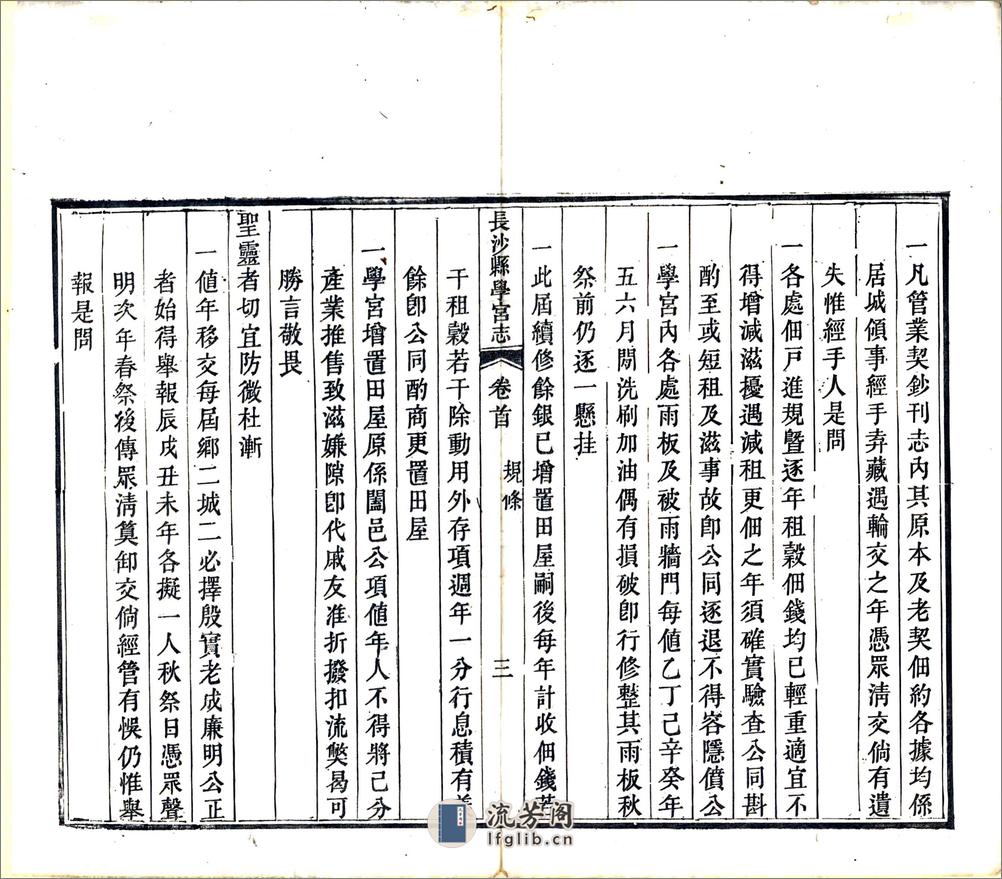 一凡管業契鈔刊志內其原本及老契佃約各據均係
居城領事經手弆藏遇輪交之年憑眾清交倘有遺
失惟經手人是問
一各處佃戸進規曁逐年租穀佃錢均已輕重適宜不
得增減滋擾遇減租更佃之年須確實驗查公同斟
酌至或短租及滋事故卽公同逐退不得容隱僨公
一學宮內各處雨板及被雨牆門每値乙丁己辛癸年
五六月閒洗刷加油偶有損破卽行修整其雨板秋
祭前仍逐一懸挂
一此屆續修餘銀已增置田屋嗣後每年計收佃錢若
長沙縣學宮志 卷首 規條 三
干租穀若干除動用外存項週年一分行息積有羨
餘卽公同酌商更置田屋
一學宮增置田屋原係闔邑公項値年人不得將己分
產業推售致滋嫌隙卽代戚友准折撥扣流獘曷可
勝言敬畏
聖靈者切宜防微杜漸
一値年移交每屆鄉二城二必擇殷實老成廉明公正
者始得舉報辰戌丑未年各擬一人秋祭日憑眾聲
明次年春祭後傳眾淸算卸交倘經管有悞仍惟舉
報是問
流芳阁
lfglib.cn